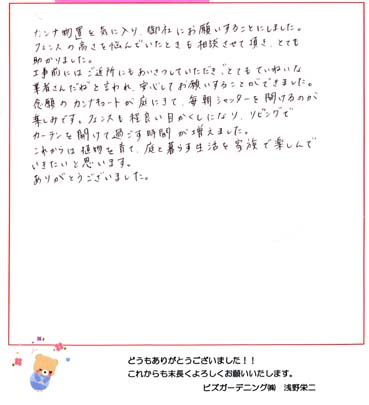 カンナ物置を気に入り、御社にお願いすることにしました。
フェンスの高さを悩んでいたときも相談させて頂き、とても
助かりました。
工事前にはご近所にもあいさつしていただき、とてもていねいな
業者さんだねと言われ、安心してお願いすることができました。
念願のカンナキュートが庭にきて、毎朝シャッターを開けるのが
楽しみです。フェンスも程良い目かくしになり、リビングで
カーテンを開けて過ごす時間が増えました。
これからは植物を育て、庭と暮らす生活を家族で楽しんで
いきたいと思います。
ありがとうございました。
どうもありがとうございました！！
これからも末長くよろしくお願いいたします。
ビズガーデニング㈱ 浅野栄二